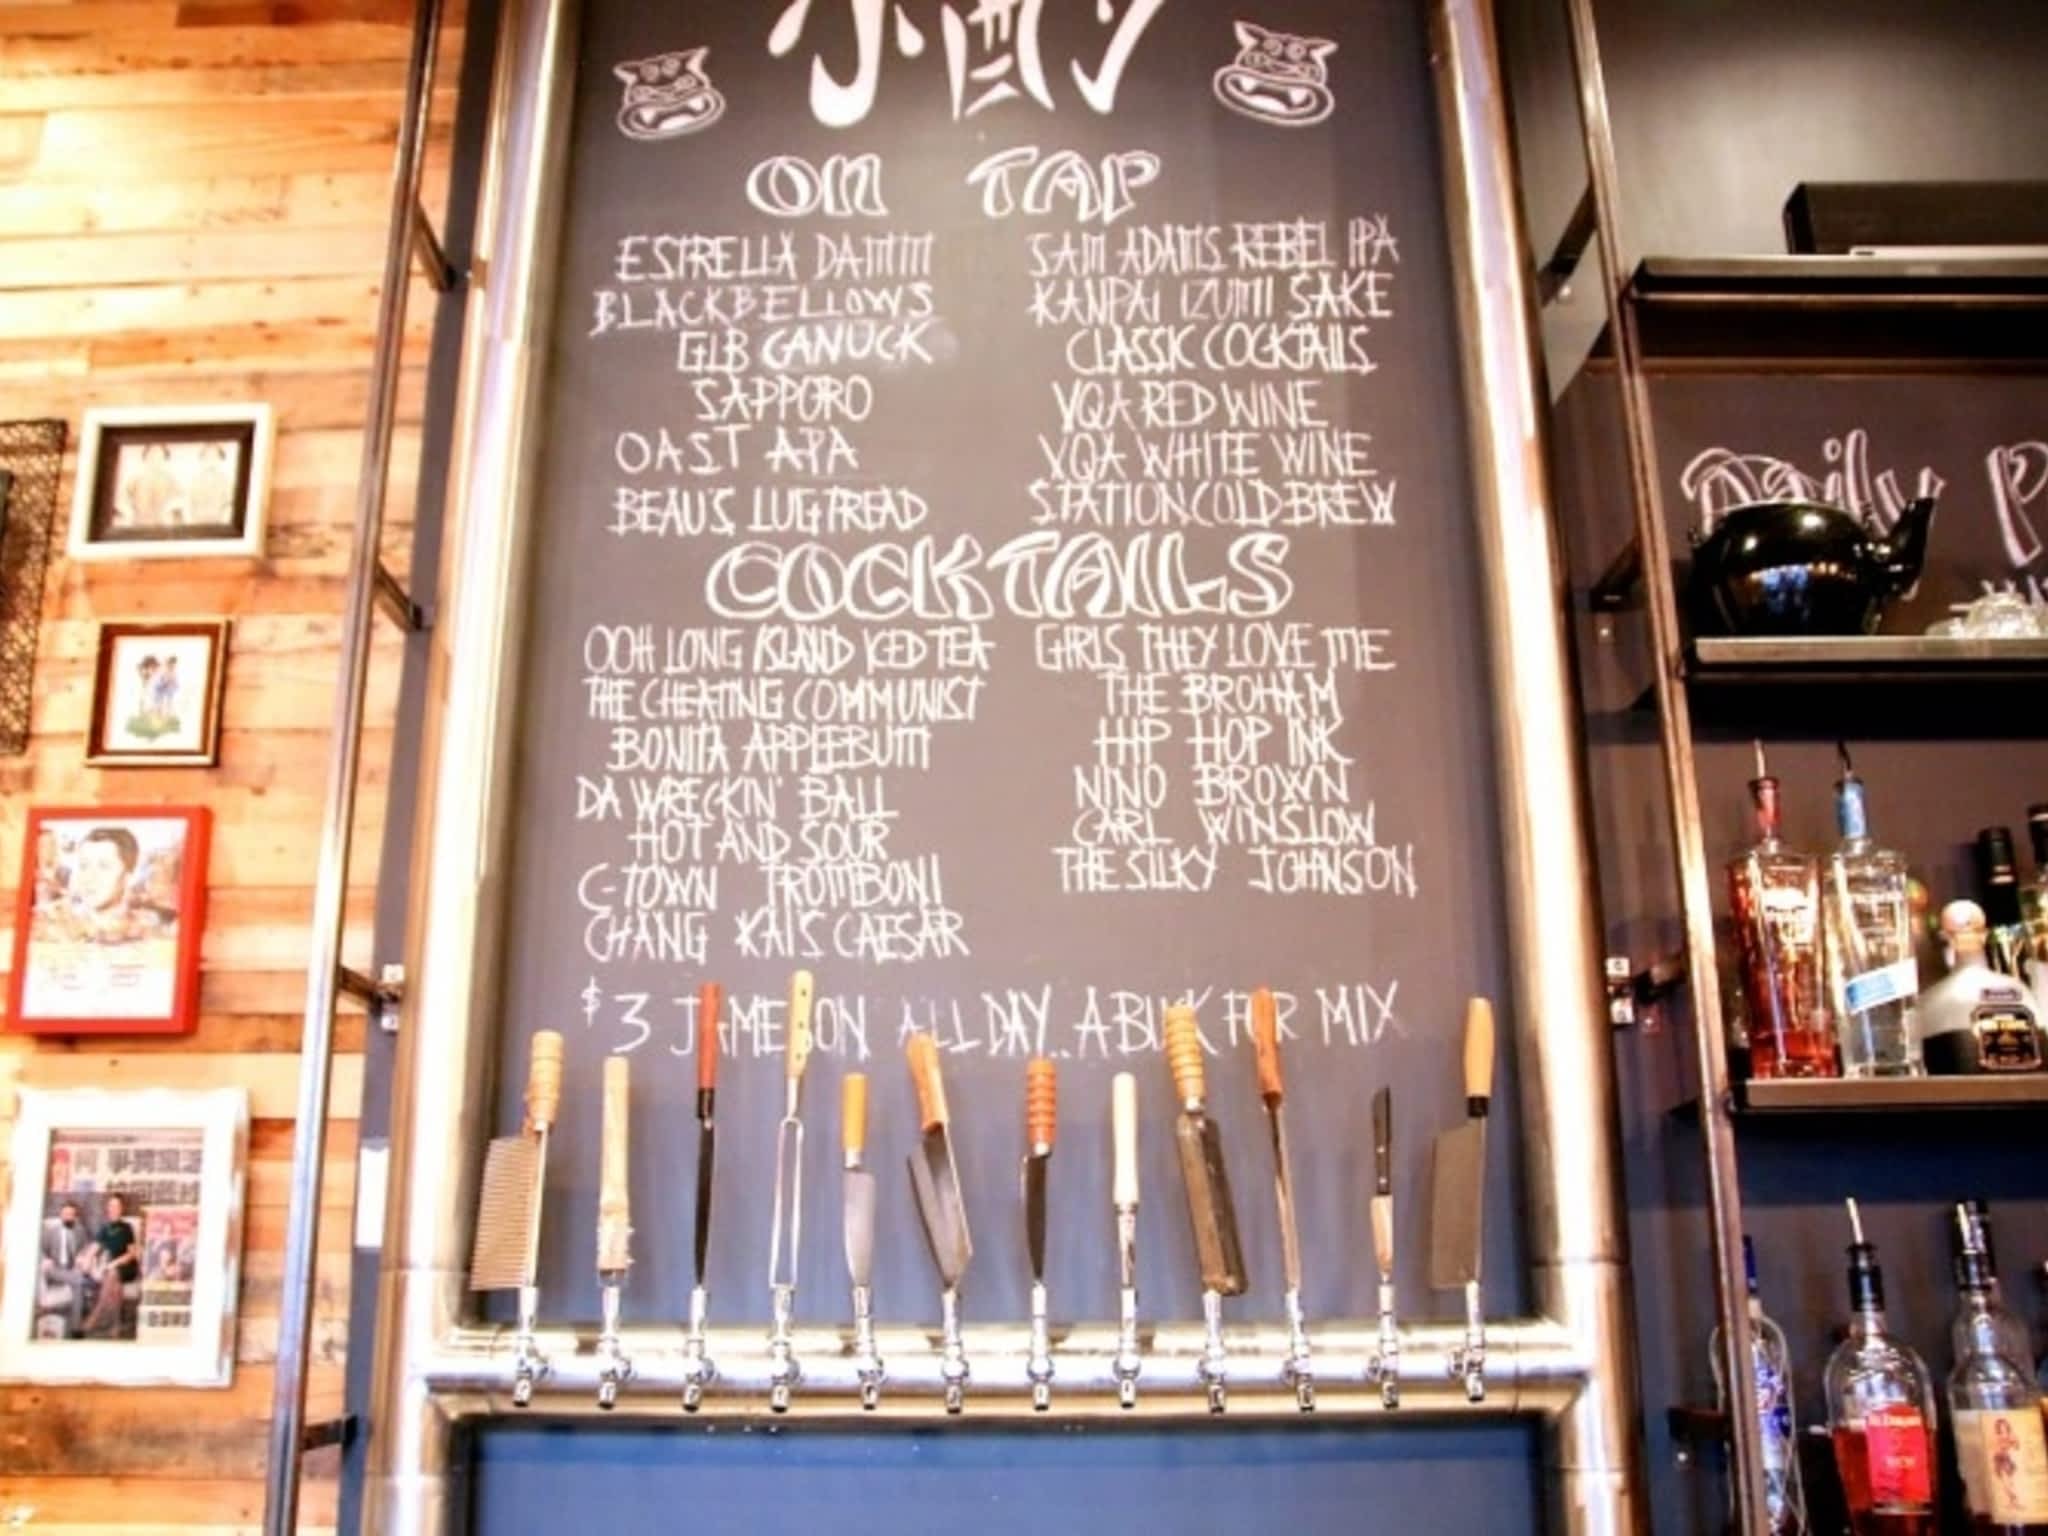 ON TAP
ESTRELLA DAMM
BLACKBELLOWS
GLB CANUCK
SAPPORO
OAST APA
BEAU'S LUGTREAD
SAM ADAMS REBEL IPA
KANPAI IZUMI SAKE
CLASSIC COCKTAILS
VQA RED WINE
VQA WHITE WINE
STATION COLD BREW
COCKTAILS
OOH LONG ISLAND ICED TEA
THE CHEATING COMMUNIST
BONITA APPLEBUM
DA WRECKIN' BALL
HOT AND SOUR
C-TOWN TROMBONI
CHANG KAI'S CAESAR
GIRLS THEY LOVE ME
THE BROHAM
HIP HOP INK
NINO BROWN
CARL WINSLOW
THE SILKY JOHNSON
$3 JAMESON ALL DAY.. A BUCK FOR MIX
Daily P